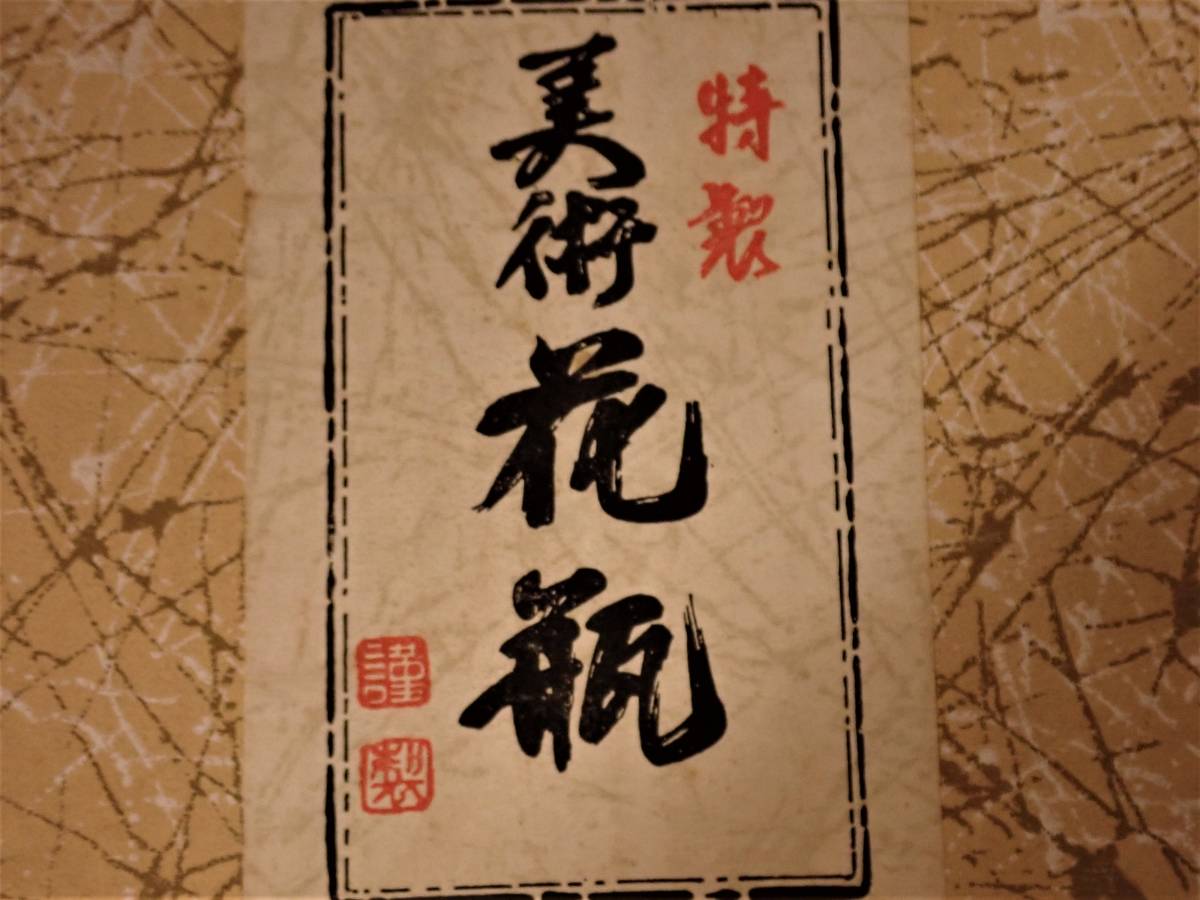 特製
美術花瓶
謹製